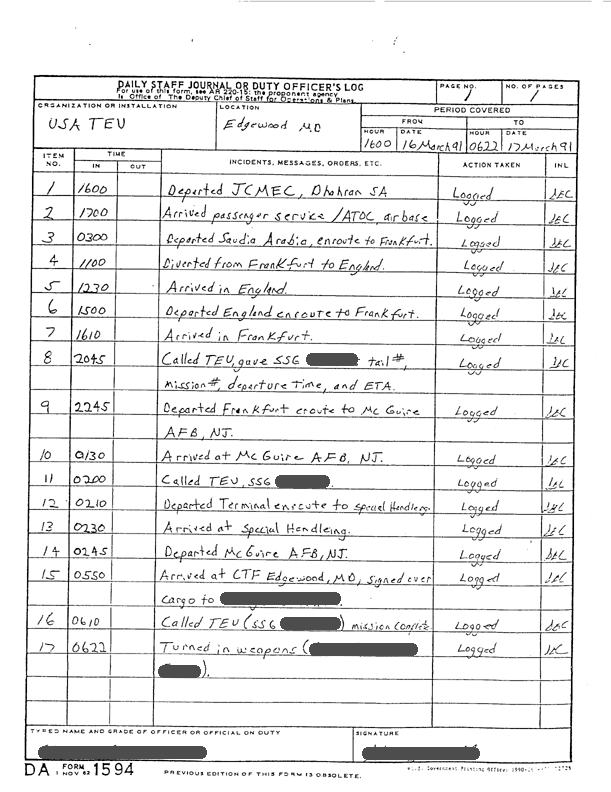 DAILY STAFF JOURNAL OR DUTY OFFICER'S LOG
For use of this form, see AR 220-15; the proponent agency
is Office of The Deputy Chief of Staff for Operations & Plans.
PAGE NO.
1
NO. OF PAGES
1
ORGANIZATION OR INSTALLATION
USA TEU
LOCATION
Edgewood MD
PERIOD COVERED
FROM
TO
HOUR
DATE
HOUR
DATE
1600 16 March 91 0622 17 March 91
ITEM NO.
TIME
IN
OUT
INCIDENTS, MESSAGES, ORDERS, ETC.
ACTION TAKEN
INL
1 1600 Departed JCMEC, Dhahran SA Logged
2 1700 Arrived passenger service /ATOC, airbase Logged
3 0300 Departed Saudia Arabia, enroute to Frankfurt. Logged
4 1100 Diverted from Frankfurt to England. Logged
5 1230 Arrived in England. Logged
6 1500 Departed England enroute to Frankfurt. Logged
7 1610 Arrived in Frankfurt. Logged
8 2045 Called TEU, gave SSG tail #, Logged
mission #, departure time, and ETA.
9 2245 Departed Frankfurt eroute to McGuire Logged
AFB, NJ.
10 0130 Arrived at McGuire AFB, NJ. Logged
11 0200 Called TEU, SSG Logged
12 0210 Departed Terminal enroute to Special Handleing. Logged
13 0230 Arrived at Special Handleing. Logged
14 0245 Departed McGuire AFB, NJ. Logged
15 0550 Arrived at CTF Edgewood, MD, signed over Logged
cargo to .
16 0610 Called TEU (SSG ) mission complete Logged
17 0622 Turned in weapons ( Logged
).
TYPED NAME AND GRADE OF OFFICER OR OFFICIAL ON DUTY
SIGNATURE
DA FORM 1 NOV 62 1594
PREVIOUS EDITION OF THIS FORM IS OBSOLETE.
U.S. Government Printing Office: 1990